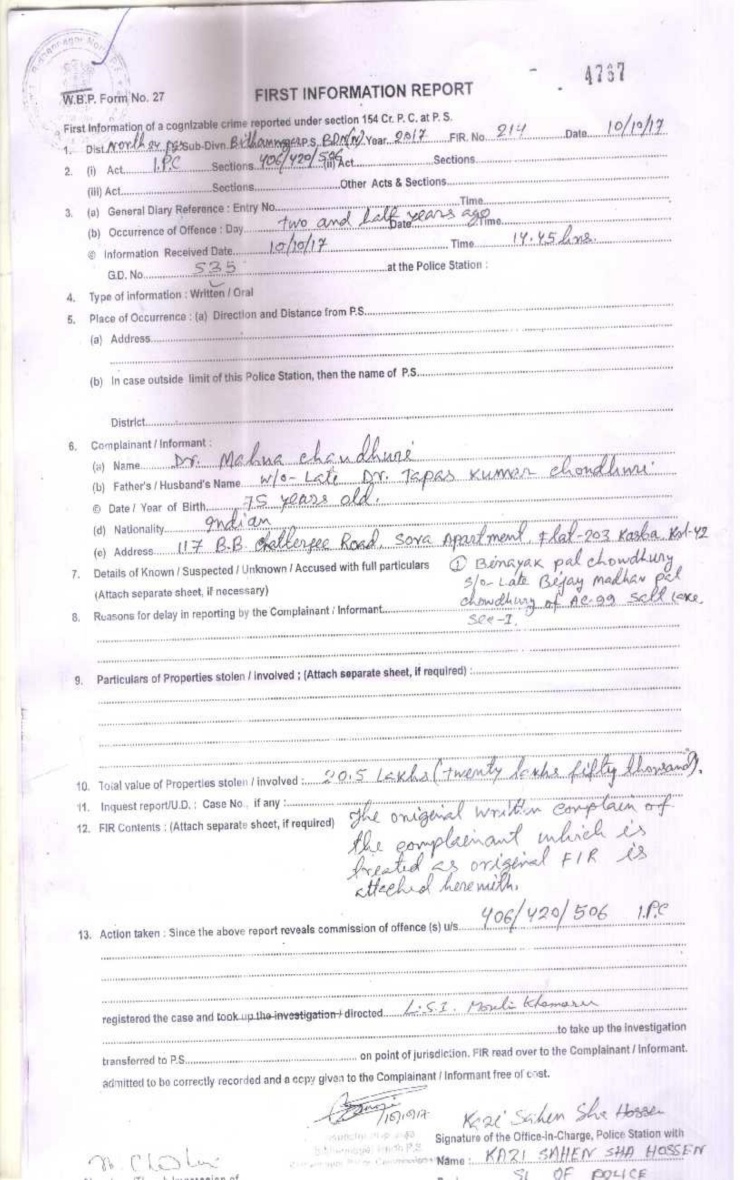 4767
W.B.P. Form No. 27
FIRST INFORMATION REPORT
First Information of a cognizable crime reported under section 154 Cr. P. C. at P. S.
1. Dist. North 24 PGS Sub-Divn. Bidhannagar P.S. BDN(N) Year 2017 FIR. No. 214 Date 10/10/17
2. (i) Act I.P.C Sections 406/420/506 (ii) Act Sections
(iii) Act Sections Other Acts & Sections
3. (a) General Diary Reference : Entry No. Time
(b) Occurrence of Offence : Day two and half years ago Date Time
© Information Received Date 10/10/17 Time 14.45 hrs.
G.D. No. 535 at the Police Station :
4. Type of information : Written / Oral
5. Place of Occurrence : (a) Direction and Distance from P.S.
(a) Address
(b) In case outside limit of this Police Station, then the name of P.S.
District
6. Complainant / Informant :
(a) Name Dr. Mahua chaudhuri
(b) Father's / Husband's Name w/o- Late Dr. Tapas Kumar chondhuri
© Date / Year of Birth 75 years old.
(d) Nationality Indian
(e) Address 117 B.B. Chatterjee Road, Sova Apartment, Flat-203 Kasba, Kol-42
7. Details of Known / Suspected / Unknown / Accused with full particulars ① Binayak pal chowdhury
(Attach separate sheet, if necessary) s/o- Late Bejay madhav pal
8. Reasons for delay in reporting by the Complainant / Informant chowdhury of AC-99 Salt lake,
Sec-I.
9. Particulars of Properties stolen / involved ; (Attach separate sheet, if required) :
10. Total value of Properties stolen / involved : 20.5 Lakhs (twenty lakhs fifty thousand).
11. Inquest report/U.D. : Case No., if any :
12. FIR Contents : (Attach separate sheet, if required) The original written complain of
the complainant which is
treated as original FIR is
attached herewith.
13. Action taken : Since the above report reveals commission of offence (s) u/s 406/420/506 I.P.C
registered the case and took up the investigation / directed L.S.I. Mouli Khamaru
to take up the investigation
transferred to P.S. on point of jurisdiction. FIR read over to the Complainant / Informant.
admitted to be correctly recorded and a copy given to the Complainant / Informant free of cost.
Kazi Sahen Sha Hossen
Signature of the Office-in-Charge, Police Station with
Name : KAZI SAHEN SHA HOSSEN
SI OF POLICE